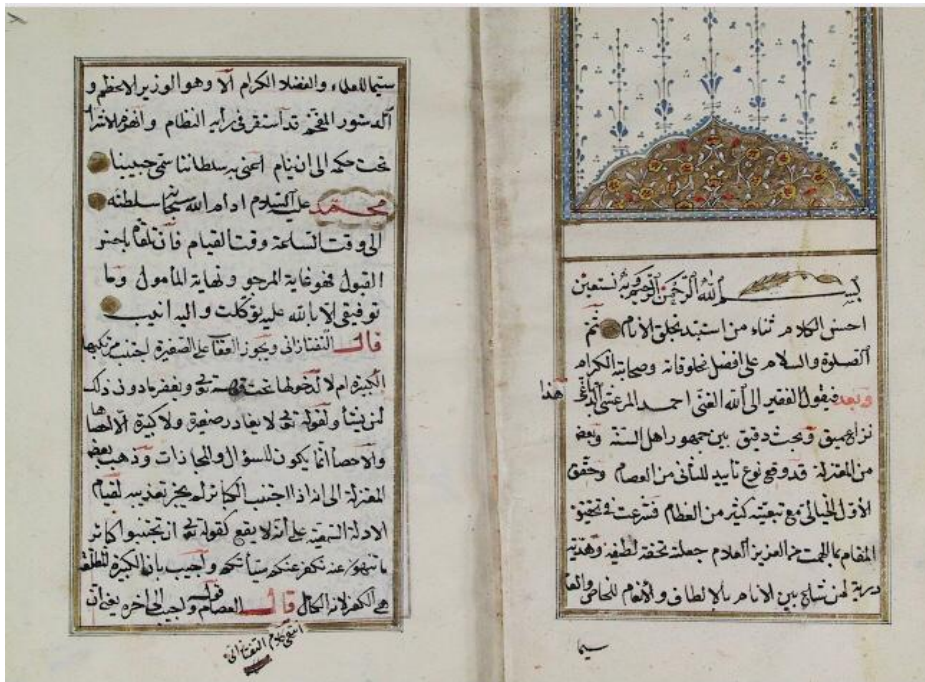 بسم الله الرحمن الرحيم وبه نستعين
احسن الكلام ثناء من استبد بخلق الأنام ثم
الصلوة والسلام على افضل مخلوقاته وصحابته الكرام
وبعد فيقول الفقير الى الله الغنى احمد المرعشى هذا
نزاع عميق وبحث دقيق بين جمهور اهل السنة وبعض
من المعتزلة قد وقع نوع تاييد للثانى من العصام وحقق
الأول الخيالى مع تبعيته كثير من العظام فشرعت فى تحقيق
المقام بما الهمت من العزيز العلام جعلته تحفة لطيفة وهدية
درية لمن شاع بين الانام بالإلطاف والأنعام للخاص والعام
سيما
سيما للعلماء والفضلاء الكرام ألا وهو الوزير الاعظم و
الدستور المفخم قد استقر فى رأيه النظام وانهزم الاشرار
تحت حكمه الى ان ينام اعنى به سلطاننا سمى حبيبنا
محمد عليه السلام ادام الله سبحانه سلطنته
الى وقت الساعة وقت القيام فأن تلقاه بحسن
القبول فهو غاية المرجو ونهاية المأمول وما
توفيقى الا بالله عليه توكلت واليه انيب
قال التفتازانى ويجوز العقاب على الصغيرة اجتنب مرتكبها
الكبيرة ام لا لدخولها تحت قوله تع ويغفر ما دون ذلك
لمن يشأ ولقوله تع لا يغادر صغيرة ولا كبيرة الا احصاها
والاحصاء انما يكون للسؤال والمجازات وذهب بعض
المعتزلة الى انه اذا اجتنب الكبائر لم يجز تعذيبه لقيام
الادلة السمعية على أنه لا يقع كقوله تع ان تجتنبوا كبائر
ما تنهون عنه نكفر عنكم سيأتكم واجيب بان الكبيرة المطلقة
هى الكفر لانه الكامل قال العصام قوله واجيب الى اخره يعنى ان
انتهى كلام التفتازانى